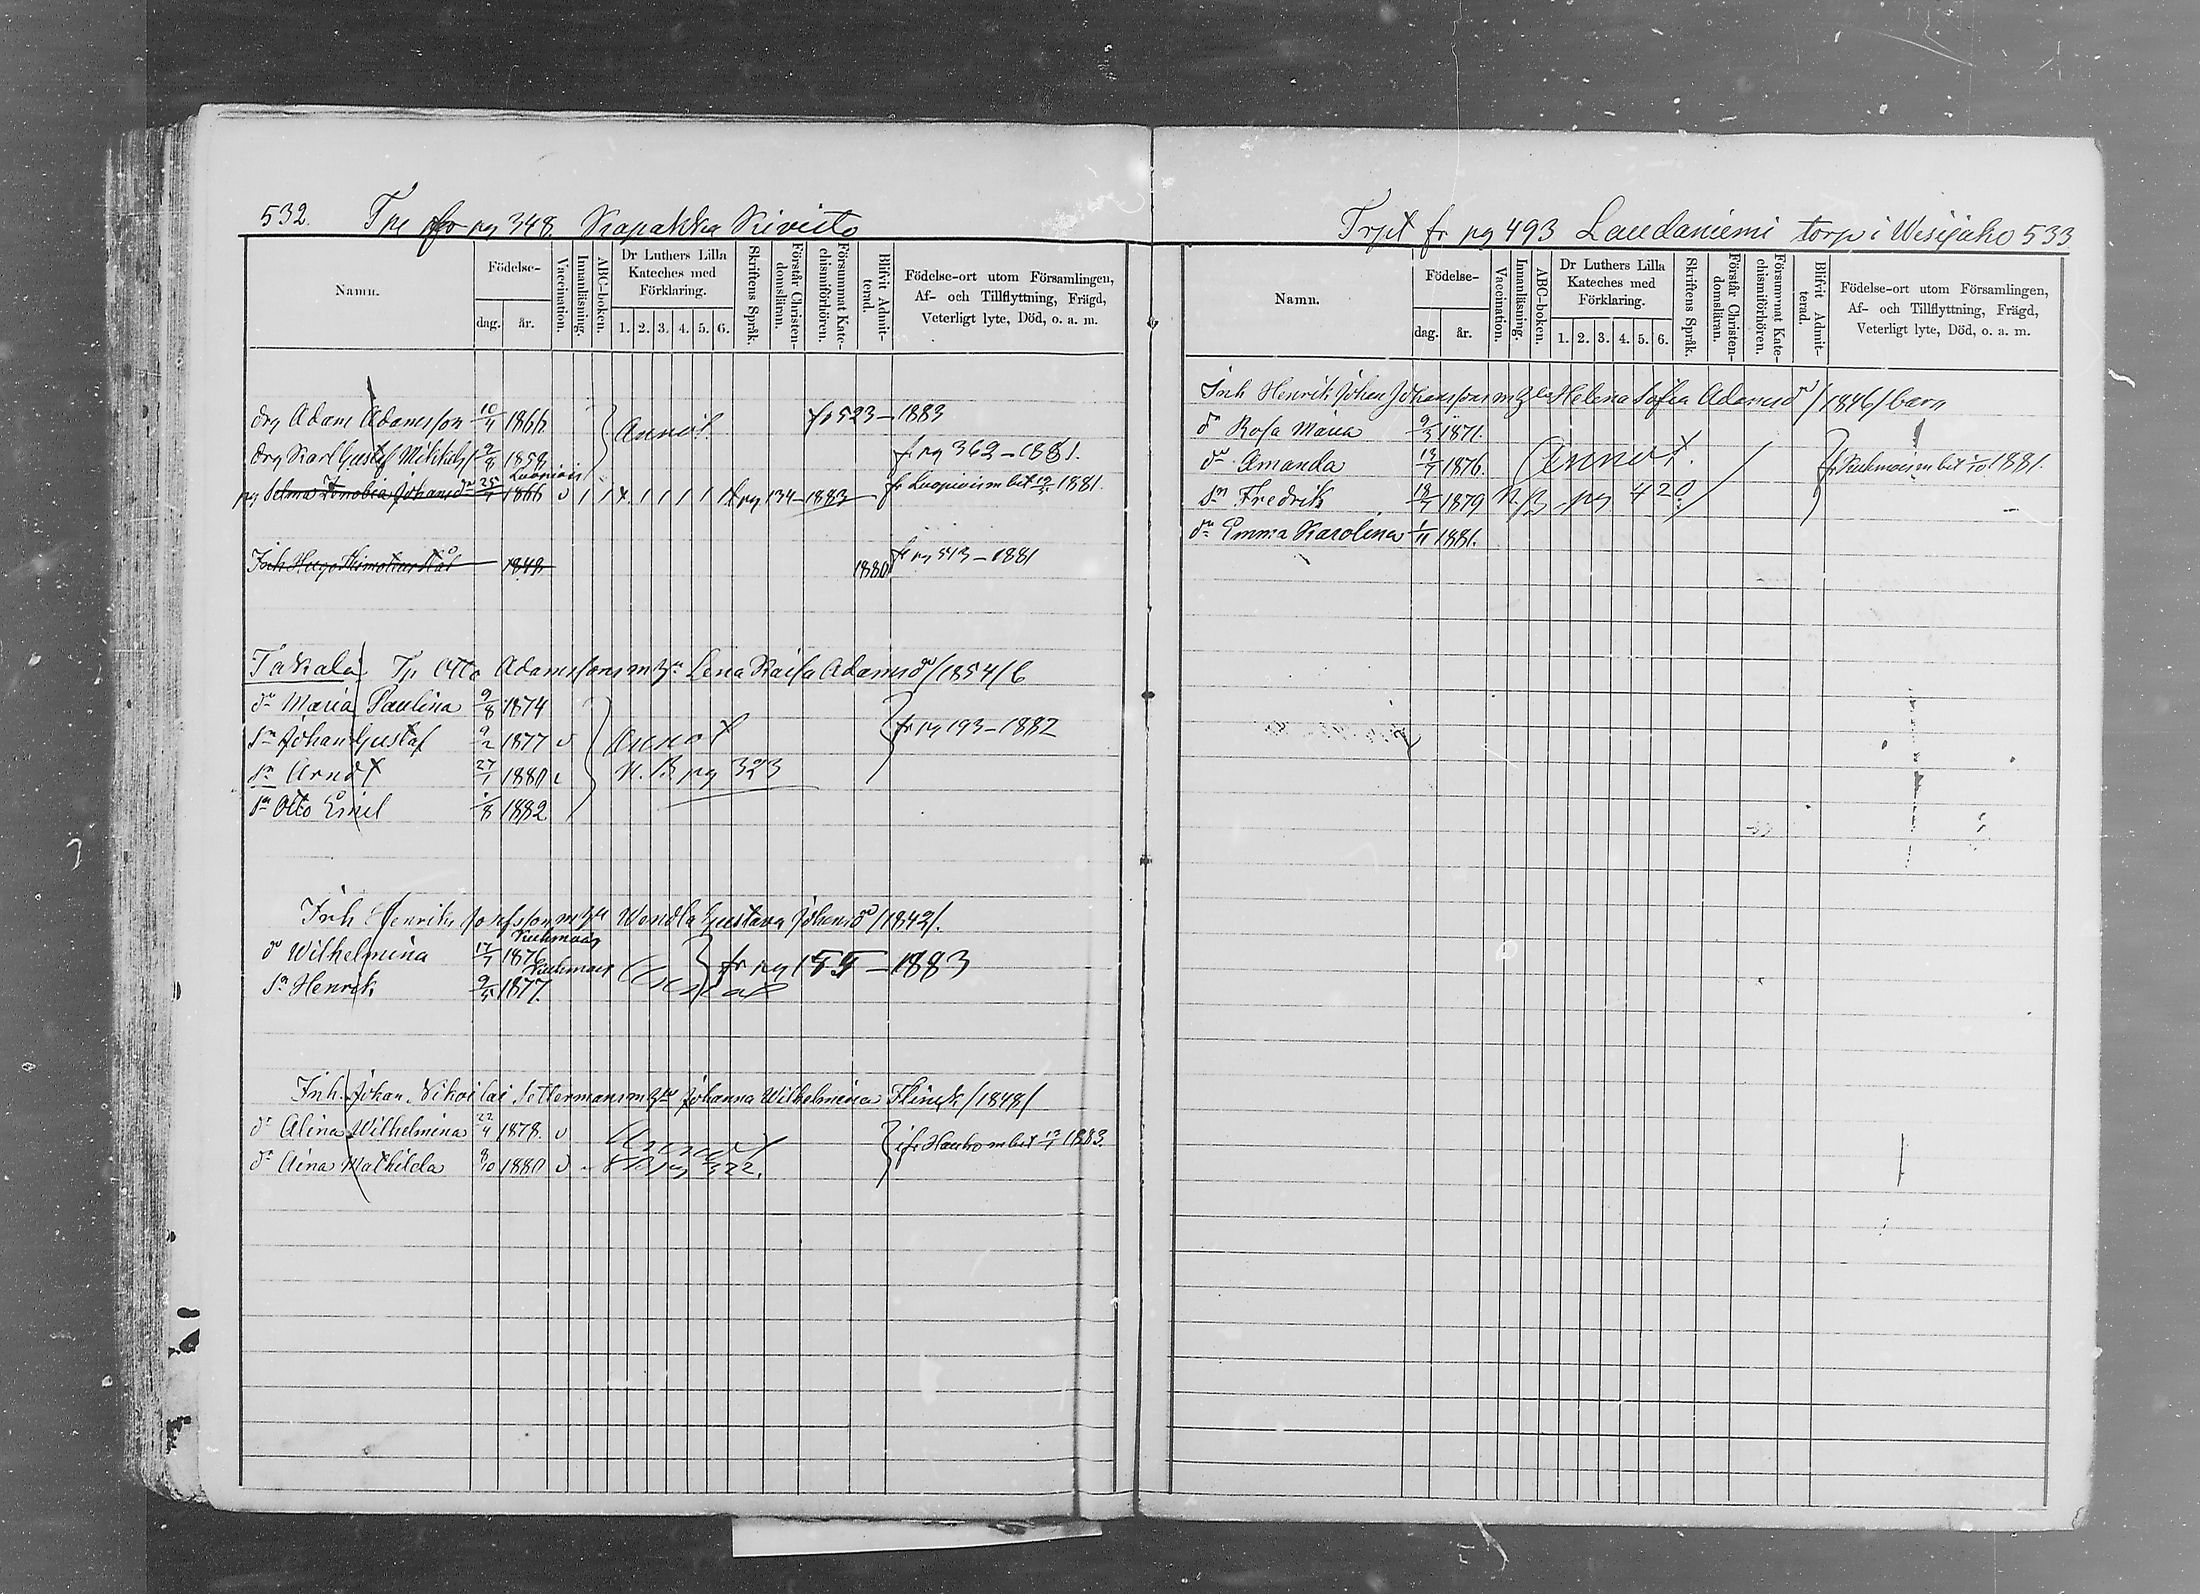 532. Trp fr pg 348. Kapakka Kivisto
Namn.
Födelse-
dag. år.
Vaccination.
Innanläsning.
ABC-boken.
Dr Luthers Lilla Kateches med Förklaring.
1. 2. 3. 4. 5. 6.
Skriftens Språk.
Förstår Christendomsläran.
Försummat Katechismiförhören.
Blifvit Admitterad.
Födelse-ort utom Församlingen,
Af- och Tillflyttning, Frägd,
Veterligt lyte, Död, o. a. m.
drg Adam Adamsson 10/4 1866. Annot. fr 523 – 1883
drg Karl Gustaf Mikkels 9/8 1859 fr pg 362 – 1881.
Luopiois
pg Selma Zenobia Johansdr 25/7 1866 v fr pg 134 – 1883 fr Luopiois m bet 1881.
Inh Hugo 1848 1880 fr pg 513 – 1881
Takala Tp Otto Adamssons m hu Lena Kaisa Adamsdr /1854/ 6
dr Maria Paulina 9/8 1874
sn Johan Gustaf 9/2 1877 v Annot fr pg 193 – 1882
sn Arndt 27/1 1880 v N.B. pg 323
sn Otto Emil /8 1882
Inh Henrik Josefsson m hu Wendla Gustava Johansdr /1842/.
Kuhmois
dr Wilhelmina 17/7 1876 fr pg 155 – 1883
Kuhmois
sn Henrik 9/5 1877. Annot
Inh. Johan Nikolai Settermans m hu Johanna Wilhelmina Flinck /1848/
dr Alina Wilhelmina 22/4 1878. v Annot fr Hauho m bet 1883.
dr Aina Mathilda 8/10 1880 v NB pg 322.
Trpt fr pg 493 Laudaniemi torp i Wesijako 533
Namn.
Födelse-
dag. år.
Vaccination.
Innanläsning.
ABC-boken.
Dr Luthers Lilla Kateches med Förklaring.
1. 2. 3. 4. 5. 6.
Skriftens Språk.
Förstår Christendomsläran.
Försummat Katechismiförhören.
Blifvit Admitterad.
Födelse-ort utom Församlingen,
Af- och Tillflyttning, Frägd,
Veterligt lyte, Död, o. a. m.
Inh Henrik Johan Johanssons m hu Helena Sofia Adamsdr /1846/ barn
dr Rosa Maria 9/3 1871.
dr Amanda 12/7 1876. Annot. fr Kuhmois m bet 1881.
sn Fredrik 18/7 1879 NB pg 420
dr Emma Karolina 1/11 1881.